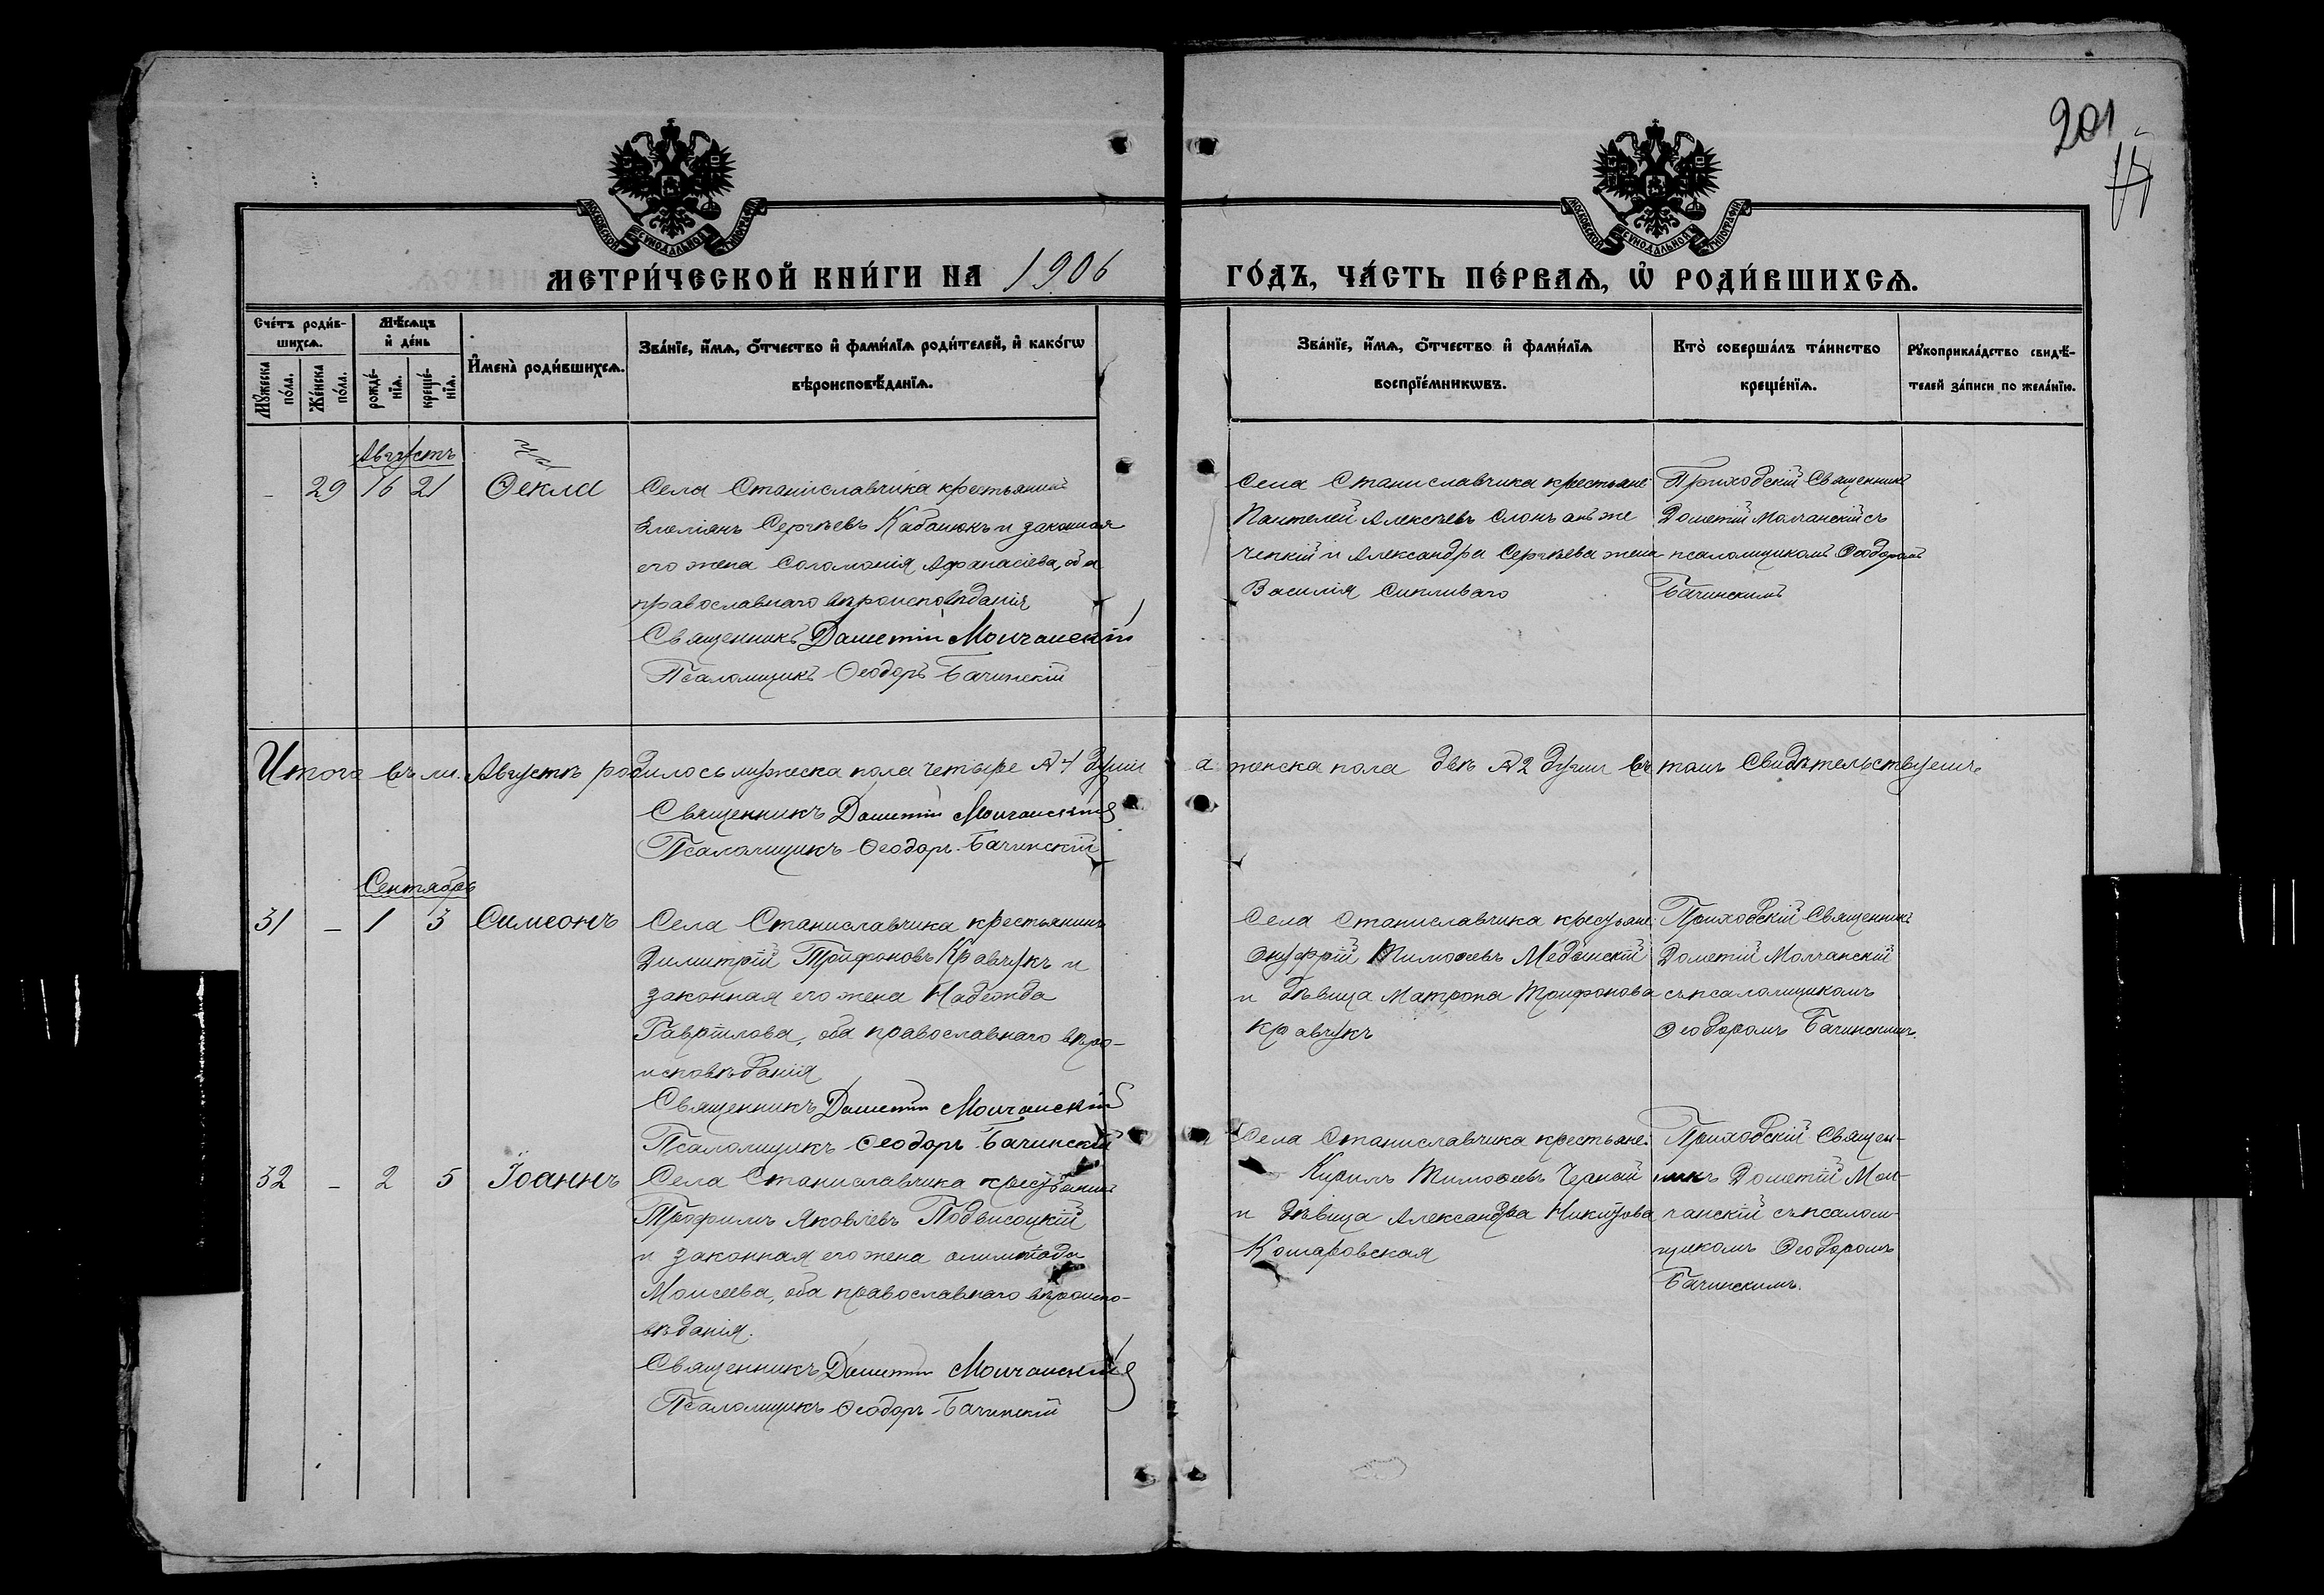 201
МОСКОВСКОЙ СѴНОДАЛЬНОЙ ТИПОГРАФІИ
МОСКОВСКОЙ СѴНОДАЛЬНОЙ ТИПОГРАФІИ
МЕТРИ́ЧЕСКОЙ КНИ́ГИ НА 1906 ГО́ДЪ, ЧА́СТЬ ПЕ́РВАѦ, Ѡ҆ РОДИ́ВШИХСѦ.
Сче́тъ роди́в-
шихсѧ.
Мѣ́сѧцъ
и҆ де́нь
Мꙋ́жеска
по́ла.
Же́нска
по́ла.
рожде́-
нїѧ.
креще́-
нїѧ.
И҆мена̀ роди́вшихсѧ.
Зва́нїе, и҆́мѧ, ѻ҆́тчество и҆ фами́лїѧ роди́телей, и҆ како́гѡ
вѣроисповѣ́данїѧ.
Зва́нїе, и҆́мѧ, ѻ҆́тчество и҆ фами́лїѧ
воспрїе́мникѡвъ.
Кто̀ соверша́лъ та́инство
креще́нїѧ.
Рꙋкоприкла́дство свидѣ́-
телей за́писи по жела́нїю.
Августъ
- 29 16 21 Ѳекла
Села Станиславчика крестьянинъ
Емеліянъ Сергѣевъ Кабанюкъ и законная
его жена Соломонія Афанасіева, оба
православнаго вѣроисповѣданія
Священникъ Дометій Молчанскій
Псаломщикъ Ѳеодоръ Бачинскій
Села Станиславчика крестьяне:
Пантелей Алексѣевъ Слонъ онъ же
и Александра Сергѣева жена
Василія Сипливаго
Приходскій Священникъ
Дометій Молчанскій съ
псаломщикомъ Ѳеодоромъ
Бачинскимъ
Итого въ м. Августѣ родилось мужеска пола четыре 4 души а женска пола двѣ 2 души въ томъ Свидѣтельствуемъ
Священникъ Дометій Молчанскій
Псаломщикъ Ѳеодоръ Бачинскій
Сентябрь
31 - 1 3 Симеонъ
Села Станиславчика крестьянинъ
Димитрій Трифоновъ Кравчукъ и
законная его жена Надежда
Гавріилова, оба православнаго вѣро-
исповѣданія
Священникъ Дометій Молчанскій
Псаломщикъ Ѳеодоръ Бачинскій
Села Станиславчика крестьяне:
Онуфрій Тимоѳеевъ Медвинскій
и дѣвица Матрона Трифонова
Кравчукъ
Приходскій Священникъ
Дометій Молчанскій
съ псаломщикомъ
Ѳеодоромъ Бачинскимъ.
32 - 2 5 Іоаннъ
Села Станиславчика крестьянинъ
Трофимъ Яковлевъ Подвисоцкій
и законная его жена Олимпіада
Моисеева, оба православнаго вѣроиспо-
вѣданія.
Священникъ Дометій Молчанскій
Псаломщикъ Ѳеодоръ Бачинскій
Села Станиславчика крестьяне:
Кирилъ Тимоѳеевъ Черній
и дѣвица Александра Никитова
Комаровская
Приходскій Священ-
никъ Дометій Мол-
чанскій съ псалом-
щикомъ Ѳеодоромъ
Бачинскимъ.